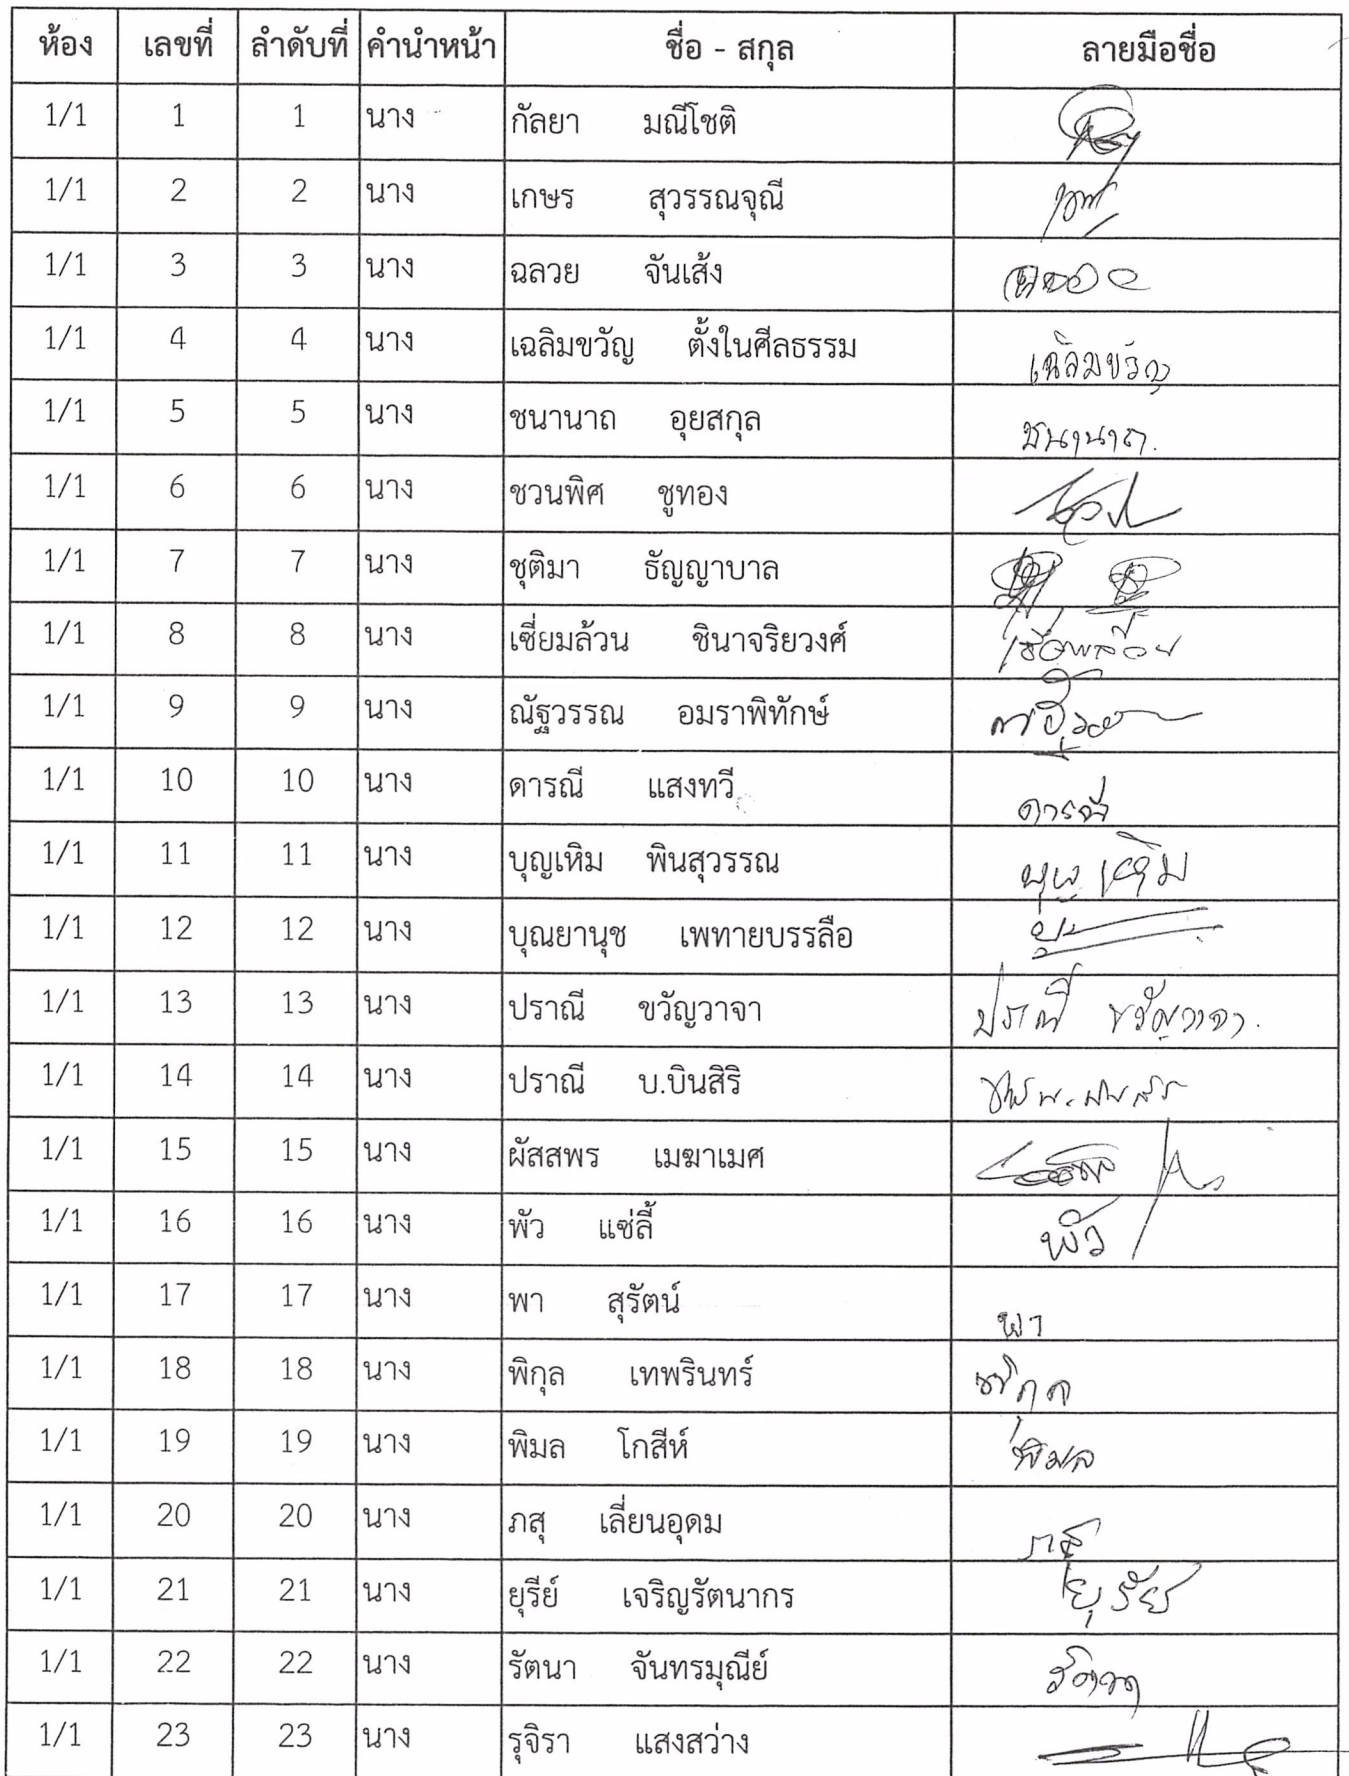 ห้อง เลขที่ ลำดับที่ คำนำหน้า ชื่อ - สกุล ลายมือชื่อ
1/1 1 1 นาง กัลยา มณีโชติ
1/1 2 2 นาง เกษร สุวรรณจุณี
1/1 3 3 นาง ฉลวย จันเส้ง
1/1 4 4 นาง เฉลิมขวัญ ตั้งในศีลธรรม เฉลิมขวัญ
1/1 5 5 นาง ชนานาถ อุยสกุล ชนานาถ.
1/1 6 6 นาง ชวนพิศ ชูทอง
1/1 7 7 นาง ชุติมา ธัญญาบาล
1/1 8 8 นาง เซี่ยมล้วน ชินาจริยวงศ์
1/1 9 9 นาง ณัฐวรรณ อมราพิทักษ์
1/1 10 10 นาง ดารณี แสงทวี ดารณี
1/1 11 11 นาง บุญเหิม พินสุวรรณ บุญเหิม
1/1 12 12 นาง บุณยานุช เพทายบรรลือ
1/1 13 13 นาง ปราณี ขวัญวาจา ปราณี ขวัญวาจา.
1/1 14 14 นาง ปราณี บ.บินสิริ
1/1 15 15 นาง ผัสสพร เมฆาเมศ
1/1 16 16 นาง พัว แซ่ลี้ พัว
1/1 17 17 นาง พา สุรัตน์ พา
1/1 18 18 นาง พิกุล เทพรินทร์ พิกุล
1/1 19 19 นาง พิมล โกสีห์ พิมล
1/1 20 20 นาง ภสุ เลี่ยนอุดม ภสุ
1/1 21 21 นาง ยุรีย์ เจริญรัตนากร ยุรีย์
1/1 22 22 นาง รัตนา จันทรมุณีย์ รัตนา
1/1 23 23 นาง รุจิรา แสงสว่าง